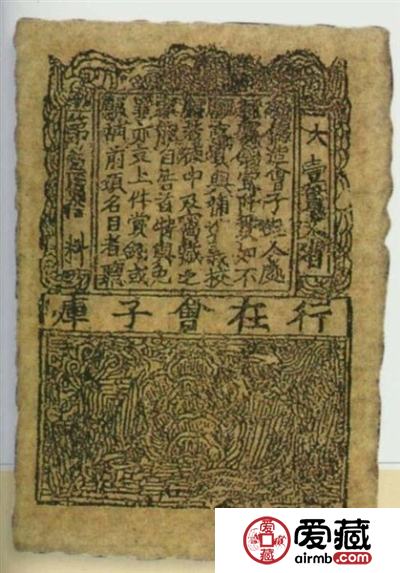 大壹貫文省
偽造會子犯人處
賞如不
賞與補進義校
徒中及窩藏之
家能自告首特與免
罪亦支上件賞錢或
願補前項名目者聽
第料
行在會子庫
爱藏
airmb.com